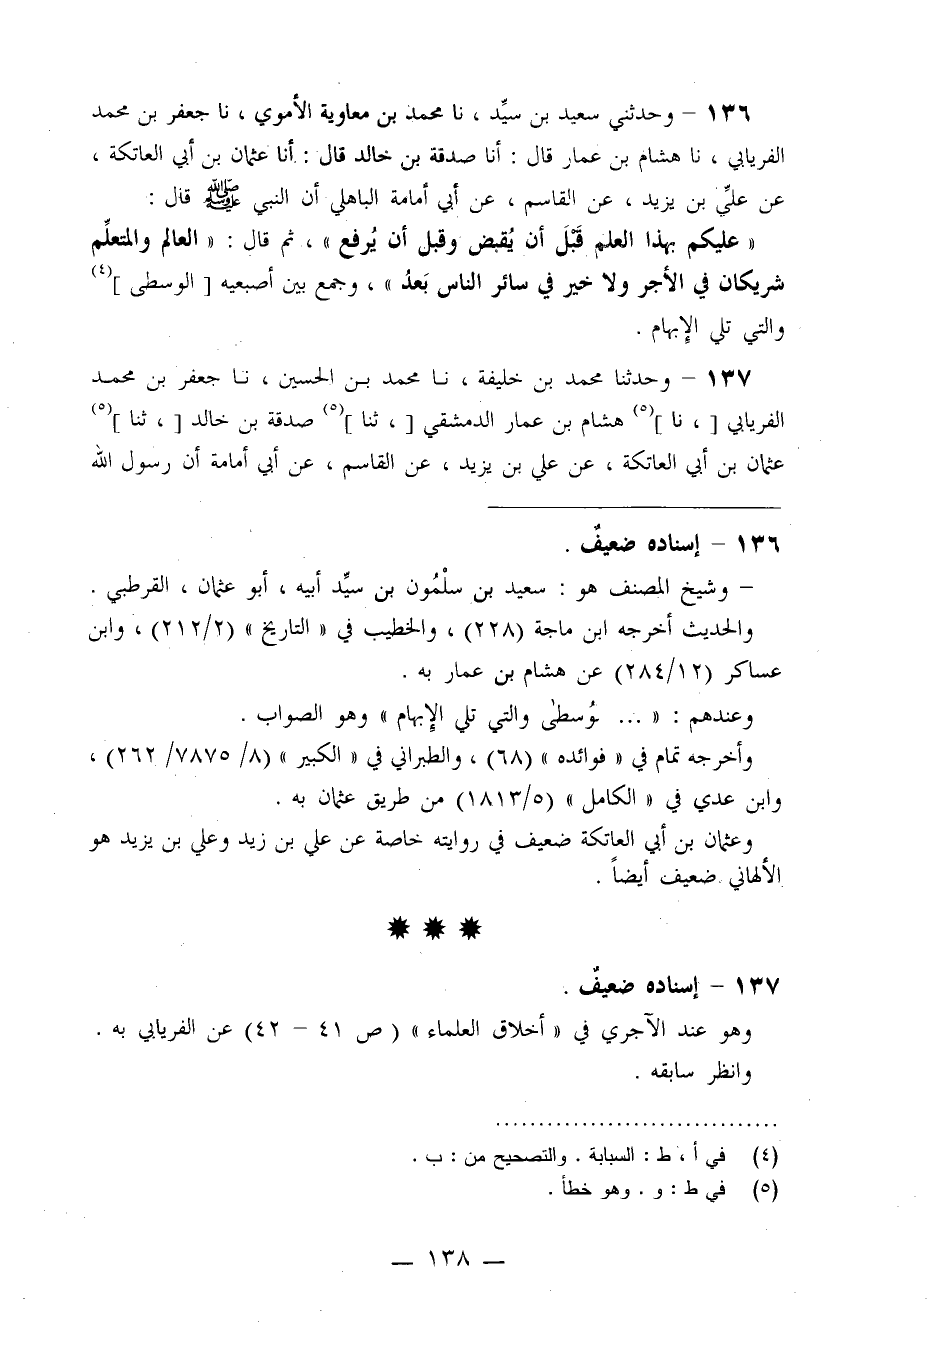 ١٣٦ – وحدثني سعيد بن سيِّد ، نا محمد بن معاوية الأموي ، نا جعفر بن محمد
الفريابي ، نا هشام بن عمار قال : أنا صدقة بن خالد قال : أنا عثمان بن أبي العاتكة ،
عن عليِّ بن يزيد ، عن القاسم ، عن أبي أمامة الباهلي أن النبي ﷺ قال :
« عليكم بهذا العلم قَبْلَ أن يُقبض وقبل أن يُرفع » ، ثم قال : « العالم والمتعلِّم
شريكان في الأجر ولا خير في سائر الناس بَعدُ » ، وجمع بين أصبعيه [ الوسطى ](٤)
والتي تلي الإبهام .
١٣٧ – وحدثنا محمد بن خليفة ، نا محمد بن الحسين ، نا جعفر بن محمد
الفريابي [ ، نا ](٥) هشام بن عمار الدمشقي [ ، ثنا ](٥) صدقة بن خالد [ ، ثنا ](٥)
عثمان بن أبي العاتكة ، عن علي بن يزيد ، عن القاسم ، عن أبي أمامة أن رسول الله
١٣٦ – إسناده ضعيفٌ .
– وشيخ المصنف هو : سعيد بن سلْمُون بن سيِّد أبيه ، أبو عثمان ، القرطبي .
والحديث أخرجه ابن ماجة (٢٢٨) ، والخطيب في « التاريخ » (٢١٢/٢) ، وابن
عساكر (٢٨٤/١٢) عن هشام بن عمار به .
وعندهم : « ... الوُسطىٰ والتي تلي الإبهام » وهو الصواب .
وأخرجه تمام في « فوائده » (٦٨) ، والطبراني في « الكبير » (٨/ ٧٨٧٥/ ٢٦٢) ،
وابن عدي في « الكامل » (١٨١٣/٥) من طريق عثمان به .
وعثمان بن أبي العاتكة ضعيف في روايته خاصة عن علي بن زيد وعلي بن يزيد هو
الألهاني ضعيف أيضاً .
١٣٧ – إسناده ضعيفٌ .
وهو عند الآجري في « أخلاق العلماء » ( ص ٤١ – ٤٢) عن الفريابي به .
وانظر سابقه .
(٤) في أ ، ط : السبابة . والتصحيح من : ب .
(٥) في ط : و . وهو خطأ .
— ١٣٨ —